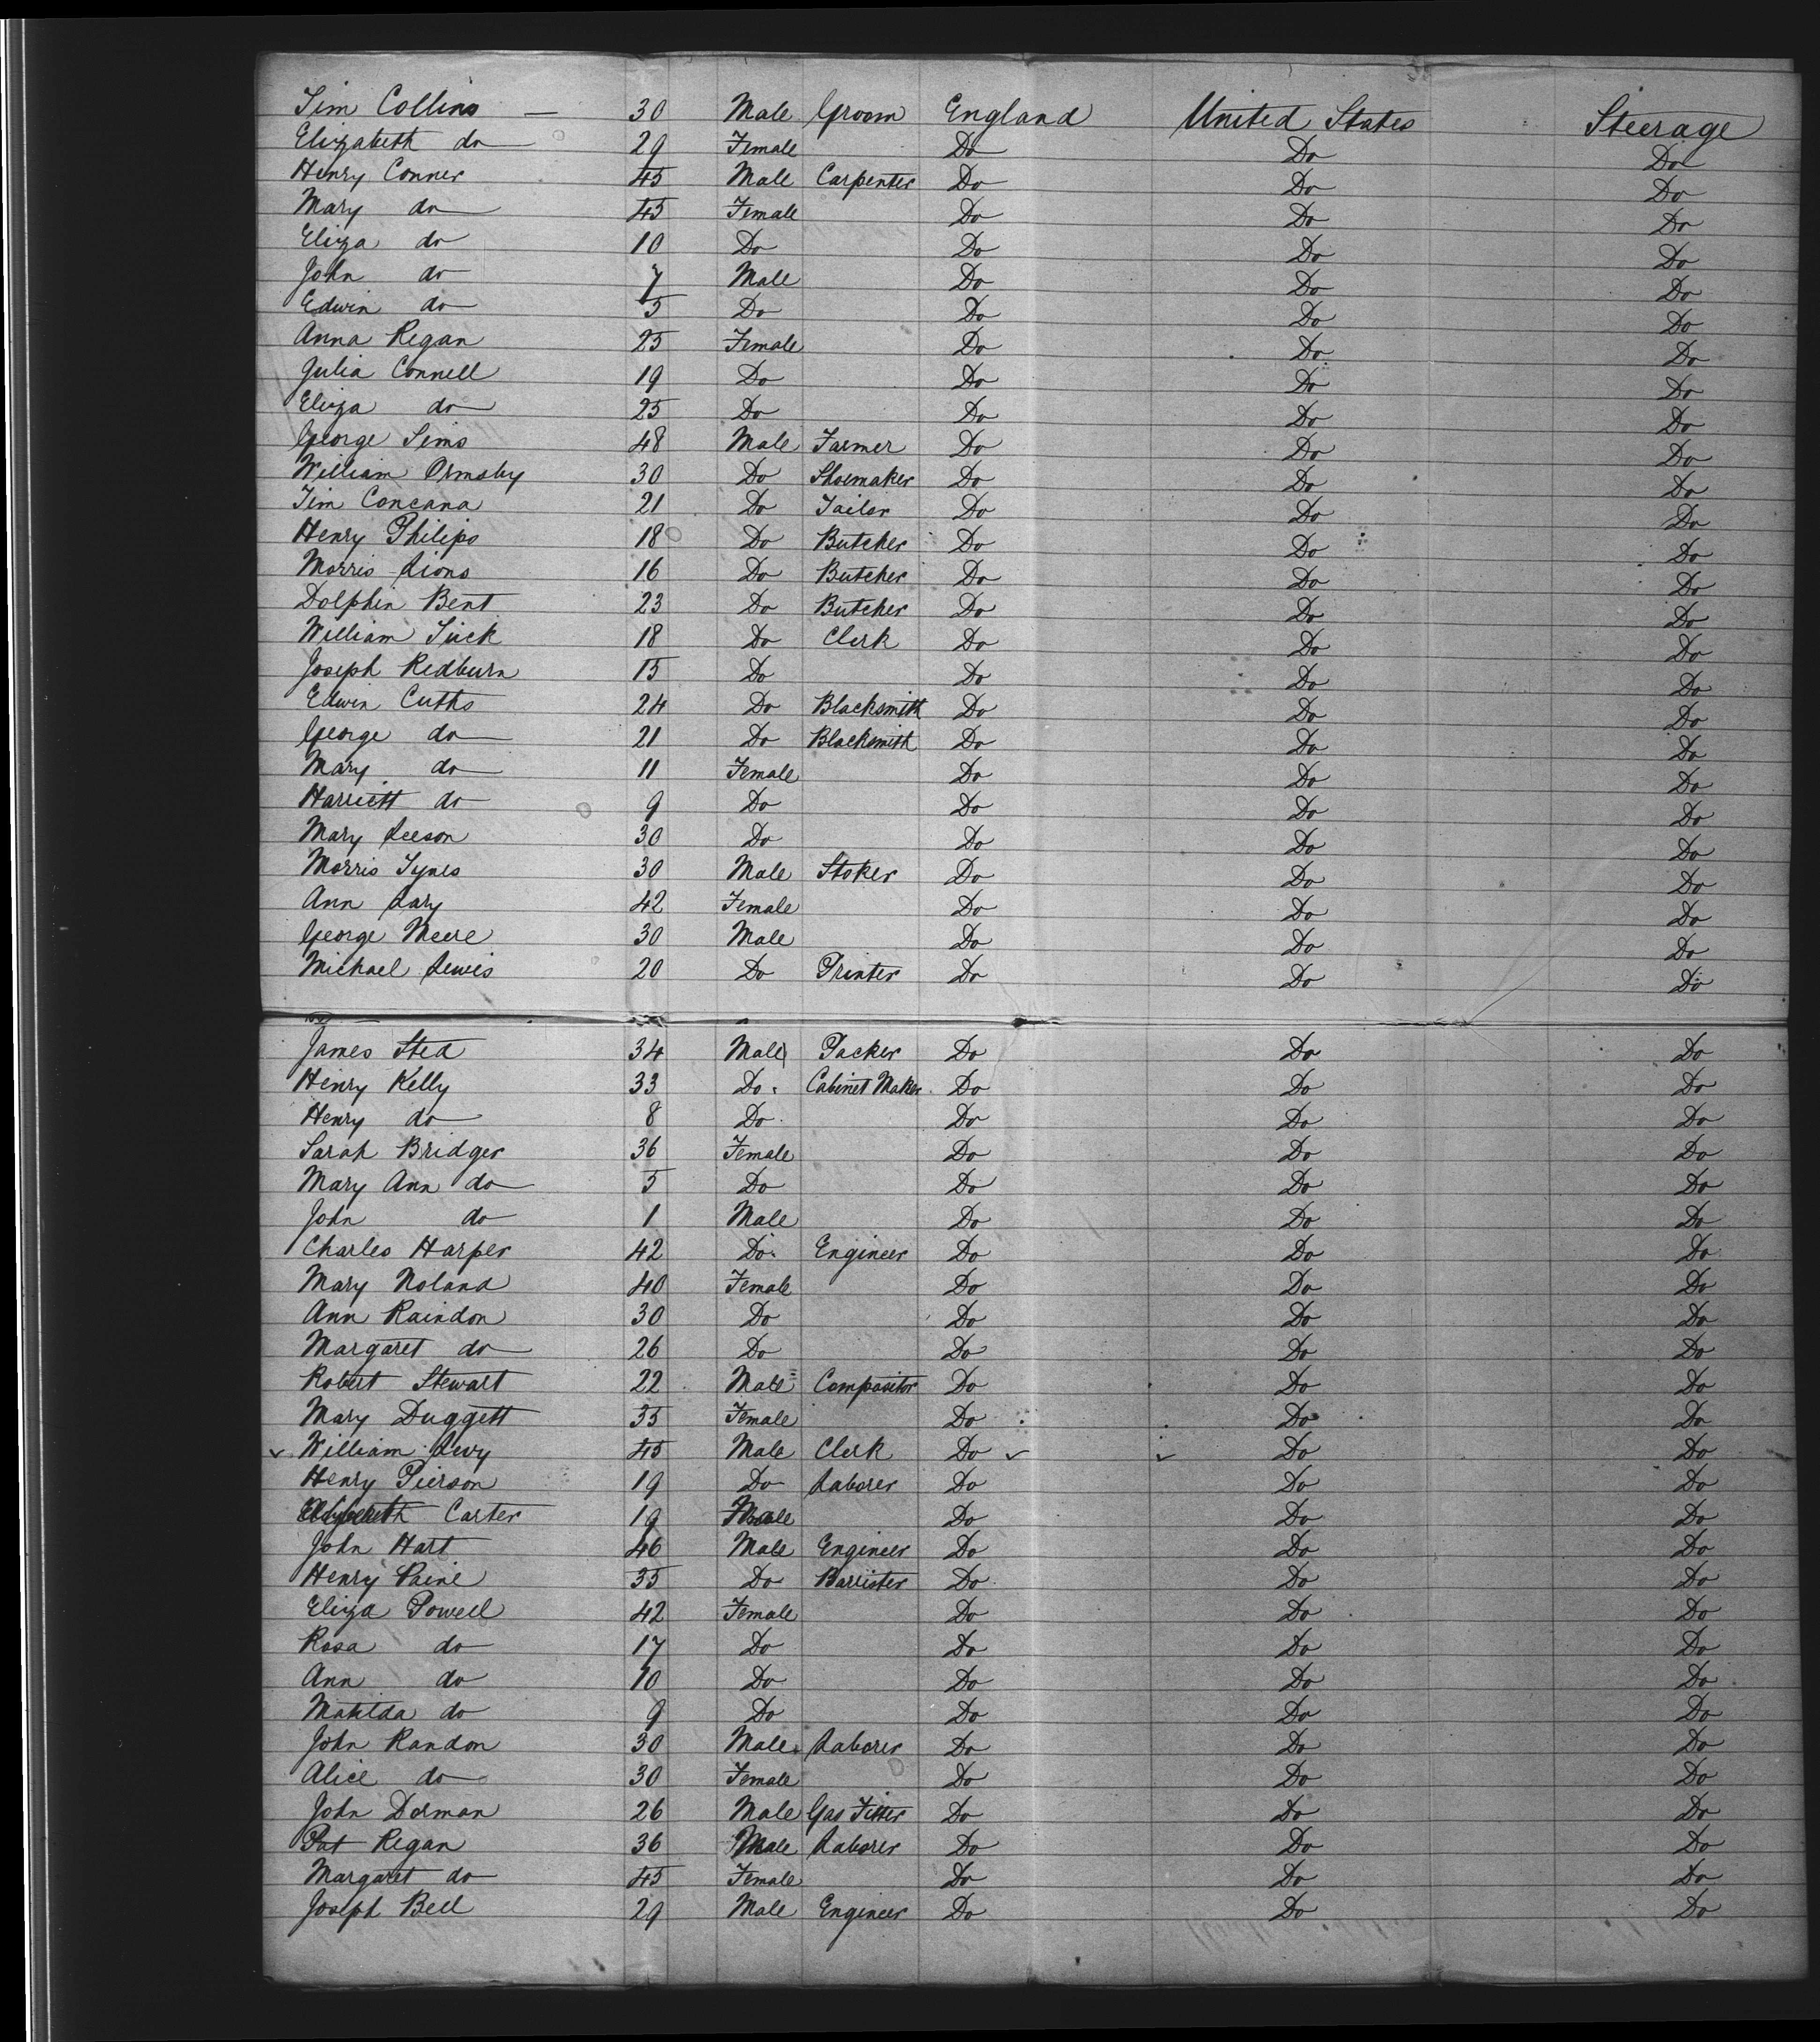 Tim Collins — 30 Male Groom England United States Steerage
Elizabeth do 29 Female Do Do Do
Henry Conner 45 Male Carpenter Do Do Do
Mary do 45 Female Do Do Do
Eliza do 10 Do Do Do Do
John do 7 Male Do Do Do
Edwin do 5 Do Do Do Do
Anna Regan 25 Female Do Do Do
Julia Connell 19 Do Do Do Do
Eliza do 25 Do Do Do Do
George Sims 48 Male Farmer Do Do Do
William Ormsby 30 Do Shoemaker Do Do Do
Tim Concana 21 Do Tailor Do Do Do
Henry Philips 18 Do Butcher Do Do Do
Morris Lions 16 Do Butcher Do Do Do
Dolphin Bent 23 Do Butcher Do Do Do
William Tuck 18 Do Clerk Do Do Do
Joseph Redburn 15 Do Do Do Do
Edwin Cutts 24 Do Blacksmith Do Do Do
George do 21 Do Blacksmith Do Do Do
Mary do 11 Female Do Do Do
Harriett do 9 Do Do Do Do
Mary Leeson 30 Do Do Do Do
Morris Tynes 30 Male Stoker Do Do Do
Ann Lary 42 Female Do Do Do
George Meere 30 Male Do Do Do
Michael Lewis 20 Do Printer Do Do Do
James Sted 34 Male Packer Do Do Do
Henry Kelly 33 Do Cabinet Maker Do Do Do
Henry do 8 Do Do Do Do
Sarah Bridger 36 Female Do Do Do
Mary Ann do 5 Do Do Do Do
John do 1 Male Do Do Do
Charles Harper 42 Do Engineer Do Do Do
Mary Noland 40 Female Do Do Do
Ann Raindon 30 Do Do Do Do
Margaret do 26 Do Do Do Do
Robert Stewart 22 Male Compositor Do Do Do
Mary Duggett 35 Female Do Do Do
William Levy 45 Male Clerk Do Do Do
Henry Pierson 19 Do Laborer Do Do Do
Carter 19 Do Do Do
John Hart 46 Male Engineer Do Do Do
Henry Paine 35 Do Barrister Do Do Do
Eliza Powell 42 Female Do Do Do
Rosa do 17 Do Do Do Do
Ann do 10 Do Do Do Do
Matilda do 9 Do Do Do Do
John Randon 30 Male Laborer Do Do Do
Alice do 30 Female Do Do Do
John Dorman 26 Male Gas Fitter Do Do Do
Pat Regan 36 Male Laborer Do Do Do
Margaret do 45 Female Do Do Do
Joseph Bell 29 Male Engineer Do Do Do